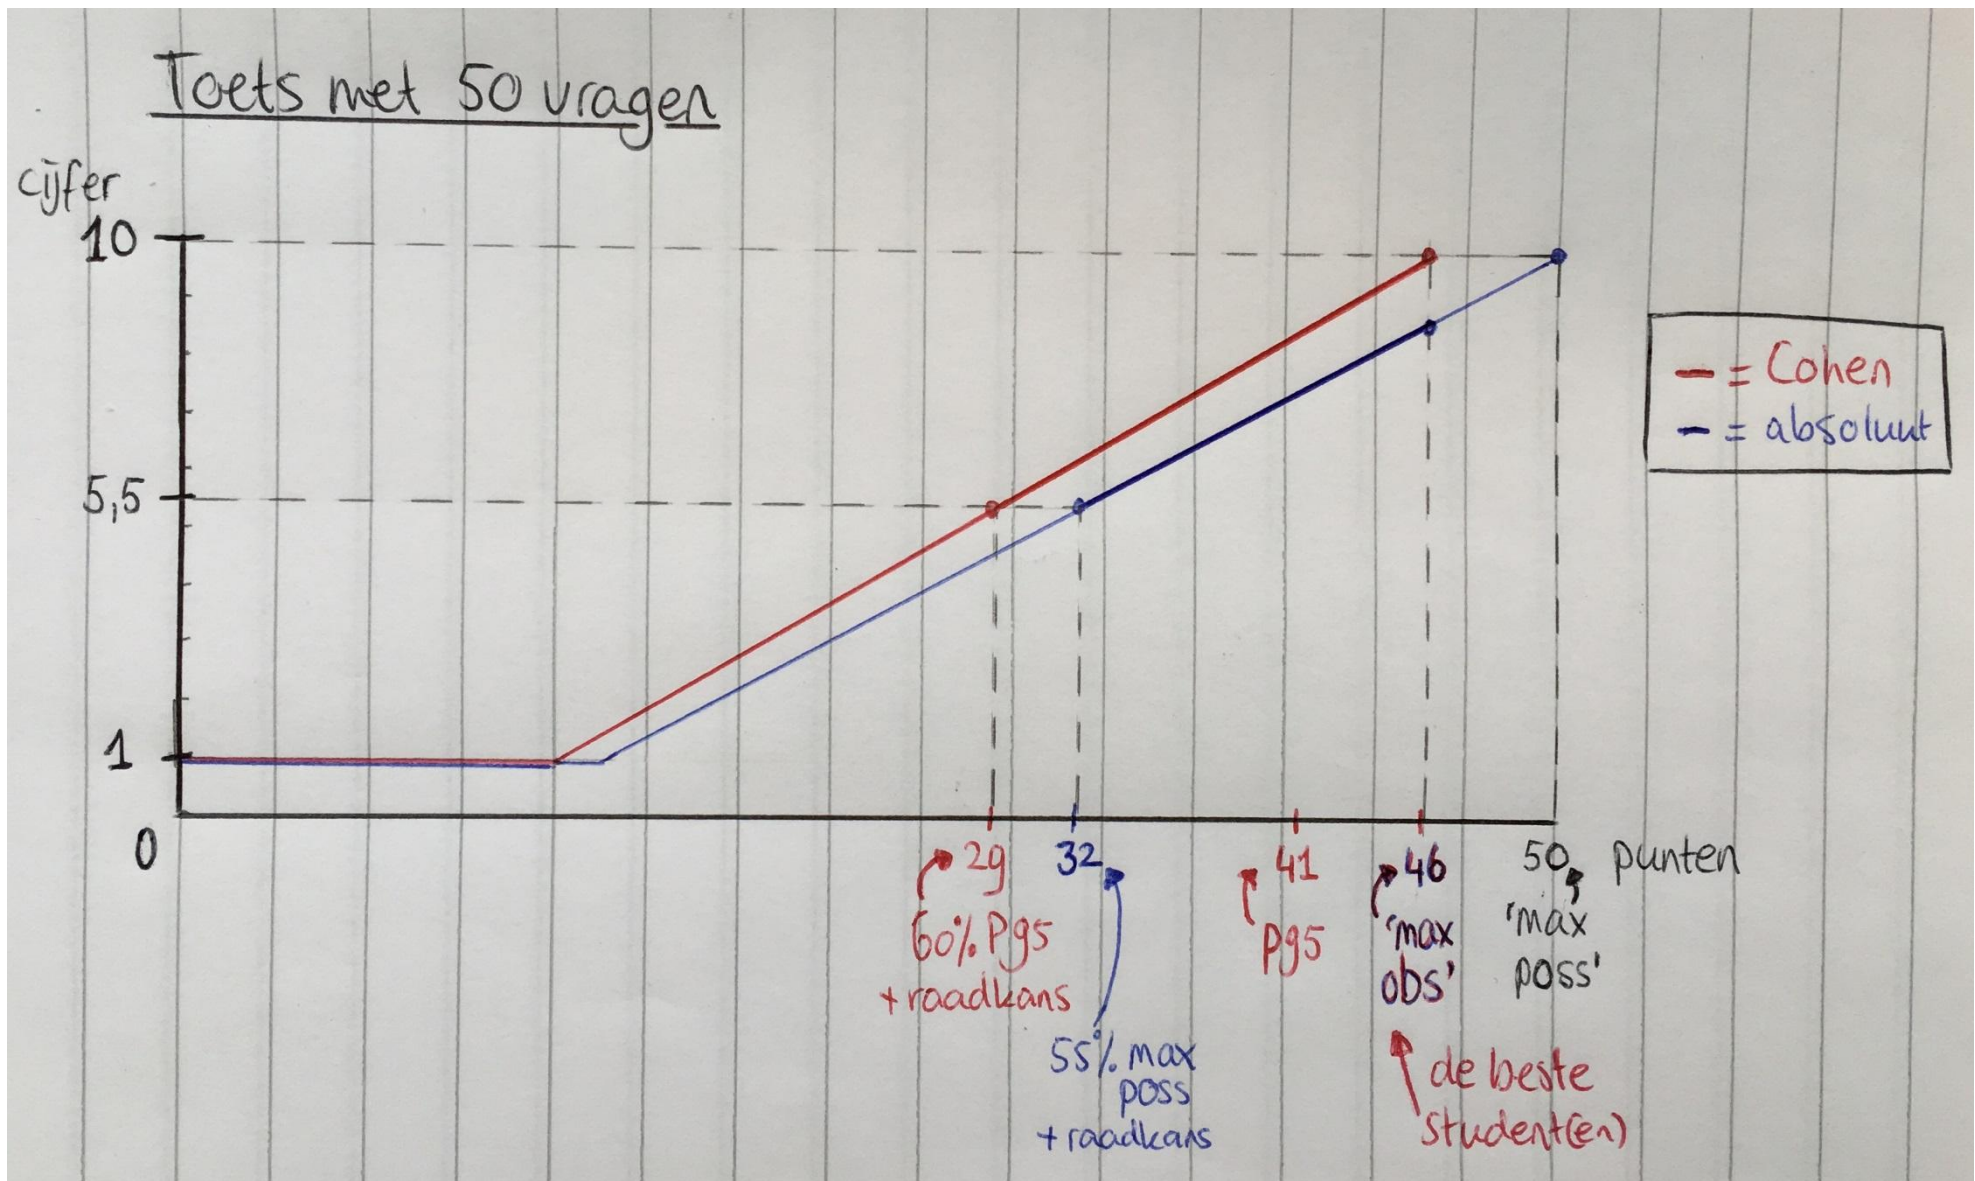 Toets met 50 vragen
cijfer
10
5,5
1
0
= Cohen
= absoluut
29
32
41
46
50
punten
60% Pg5
+ raadkans
Pg5
'max
obs'
'max
poss'
55% max
poss
+ raadkans
de beste
student(en)